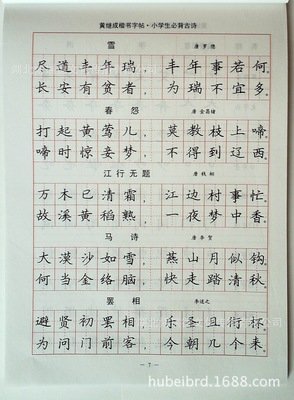 黄继成楷书字帖·小学生必背古诗
雪 唐 罗 隐
尽道丰年瑞，丰年事若何
长安有贫者，为瑞不宜多
春怨 唐 金昌绪
打起黄莺儿，莫教枝上啼
啼时惊妾梦，不得到辽西
江行无题 唐 钱 起
万木已清霜，江边村事忙
故溪黄稻熟，一夜梦中香
马诗 唐 李 贺
大漠沙如雪，燕山月似钩
何当金络脑，快走踏清秋
罢相 李适之
避贤初罢相，乐圣且衔杯
为问门前客，今朝几个来
－7－
hubeibrd.1688.com